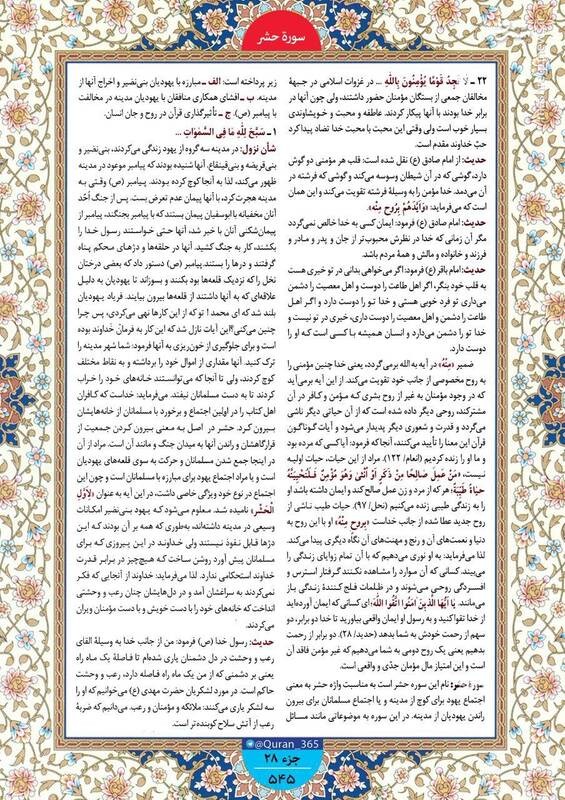 سورهٔ حشر
۲۲ ـ لا تَجِدُ قَوْمًا يُؤْمِنُونَ بِاللَّهِ ... در غزوات اسلامی در جبههٔ
مخالفان جمعی از بستگان مؤمنان حضور داشتند، ولی چون آنها در
برابر خدا بودند با آنها پیکار کردند. عاطفه و محبت و خویشاوندی
بسیار خوب است ولی وقتی این محبت با محبت خدا تضاد پیدا کرد
حبّ خداوند مقدم است.
حدیث: از امام صادق (ع) نقل شده است: قلب هر مؤمنی دو گوش
دارد، گوشی که در آن شیطان وسوسه می‌کند و گوشی که فرشته در
آن می‌دمد. خدا مؤمن را به وسیلهٔ فرشته تقویت می‌کند و این همان
است که می‌فرماید: «وَاَیَّدَهُمْ بِرُوحٍ مِنْهُ».
حدیث: امام صادق (ع) فرمود: ایمان کسی به خدا خالص نمی‌گردد
مگر آن زمانی که خدا در نظرش محبوب‌تر از جان و پدر و مادر و
فرزند و خانواده و مالش و همهٔ مردم باشد.
حدیث: امام باقر (ع) فرمود: اگر می‌خواهی بدانی در تو خیری هست
به قلب خود بنگر، اگر اهل طاعت را دوست و اهل معصیت را دشمن
می‌داری تو فرد خوبی هستی و خدا تو را دوست دارد و اگر اهل
طاعت را دشمن و اهل معصیت را دوست داری، خیری در تو نیست و
خدا تو را دشمن می‌دارد و انسان همیشه با کسی است که او را
دوست دارد.
ضمیر «مِنْهُ» در آیه به الله برمی‌گردد، یعنی خدا چنین مؤمنی را
به روح مخصوصی از جانب خود تقویت می‌کند. از این آیه برمی‌آید
که در وجود مؤمنان به غیر از روح بشری که مؤمن و کافر در آن
مشترکند، روحی دیگر داده شده است که از آن حیاتی دیگر ناشی
می‌گردد و قدرت و شعوری دیگر پدیدار می‌شود و آیات گوناگون
قرآن این معنا را تأیید می‌کنند، آنجا که فرمود: آیا کسی که مرده بود
و ما او را زنده کردیم (انعام/ ۱۲۲). مراد از این حیات، حیات اولیه
نیست، «مَنْ عَمِلَ صَالِحًا مِنْ ذَکَرٍ اَوْ اُنْثَىٰ وَهُوَ مُؤْمِنٌ فَلَنُحْیِیَنَّهُ
حَیَاةً طَیِّبَةً» هر که از مرد و زن عمل صالح کند و ایمان داشته باشد او
را به زندگی طیبی زنده می‌کنیم (نحل/ ۹۷). حیات طیب ناشی از
روح جدید عطا شده از جانب خداست «بِرُوحٍ مِنْهُ» او با این روح به
دنیا و نعمت‌های آن و رنج و مهنت‌های آن نگاه دیگری پیدا می‌کند.
لذا می‌فرماید: به او نوری می‌دهیم که با آن تمام زوایای زندگی را
می‌بیند. کسانی که آن موارد را مشاهده نکنند گرفتار استرس و
افسردگی روحی می‌شوند و در ظلمات فلج‌کنندهٔ زندگی باز
می‌مانند. یَا اَیُّهَا الَّذِینَ آمَنُوا اتَّقُوا اللَّهَ: ای کسانی که ایمان آورده‌اید
از خدا تقوا کنید و به رسول او ایمان واقعی بیاورید تا خدا دو برابر، دو
سهم از رحمت خودش به شما بدهد (حدید/ ۲۸). دو برابر از رحمت
بدهیم یعنی یک روح دومی به شما می‌دهیم که غیر مؤمن فاقد آن
است و این امتیاز مال مؤمنان جدّی و واقعی است.
سورهٔ حشر: نام این سوره حشر است به مناسبت واژه حشر به معنی
اجتماع یهود برای کوچ از مدینه و یا اجتماع مسلمانان برای بیرون
راندن یهودیان از مدینه. در این سوره به موضوعاتی مانند مسائل
زیر پرداخته است: الف ـ مبارزه با یهودیان بنی‌نضیر و اخراج آنها از
مدینه. ب ـ افشای همکاری منافقان با یهودیان مدینه در مخالفت
با پیامبر (ص). ج ـ تأثیرگذاری قرآن در روح و جان انسان.
۱ ـ سَبَّحَ لِلَّهِ مَا فِی السَّمَوَاتِ ...
شأن نزول: در مدینه سه گروه از یهود زندگی می‌کردند، بنی‌نضیر و
بنی‌قریضه و بنی‌قینقاع. آنها شنیده بودند که پیامبر موعود در مدینه
ظهور می‌کند، لذا به آنجا کوچ کرده بودند. پیامبر (ص) وقتی به
مدینه هجرت کرد، با آنها پیمان عدم تعرض بست. پس از جنگ اُحُد
آنان مخفیانه با ابوسفیان پیمان بستند که با پیامبر بجنگند، پیامبر از
پیمان‌شکنی آنان با خبر شد، آنها حتی خواستند رسول خدا را
بکشند، کار به جنگ کشید. آنها در حلقه‌ها و دژهای محکم پناه
گرفتند و درها را بستند. پیامبر (ص) دستور داد که بعضی درختان
نخل را که نزدیک قلعه‌ها بود بکنند و بسوزاند تا یهودیان به دلیل
علاقه‌ای که به آنها داشتند از قلعه‌ها بیرون بیایند. فریاد یهودیان
بلند شد که ای محمد! تو که از این کارها نهی می‌کردی، پس چرا
چنین می‌کنی؟! این آیات نازل شد که این کار به فرمان خداوند بوده
است و برای جلوگیری از خون‌ریزی به آنها فرمود: شما شهر مدینه را
ترک کنید. آنها مقداری از اموال خود را برداشته و به نقاط مختلف
کوچ کردند، ولی تا آنجا که می‌توانستند خانه‌های خود را خراب
کردند تا به دست مسلمانان نیفتد. می‌فرماید: خداست که کافران
اهل کتاب را در اولین اجتماع و برخورد با مسلمانان از خانه‌هایشان
بیرون کرد. حشر در اصل به معنی بیرون کردن جمعیت از
قرارگاهشان و راندن آنها به میدان جنگ و مانند آن است. مراد از آن
در اینجا جمع شدن مسلمانان و حرکت به سوی قلعه‌های یهودیان
است و یا مراد اجتماع یهود برای مبارزه با مسلمانان است و چون این
اجتماع در نوع خود ویژگی خاصی داشت، در این آیه به عنوان «لِاَوَّلِ
الْحَشْرِ» نامیده شد. معلوم می‌شود که یهود بنی‌نضیر امکانات
وسیعی در مدینه داشته‌اند، به‌طوری که همه بر آن بودند که این
دژها قابل نفوذ نیستند ولی خداوند در این پیروزی که برای
مسلمانان پیش آورد روشن ساخت که هیچ‌چیز در برابر قدرت
خداوند استحکامی ندارد. لذا می‌فرماید: خداوند از آنجایی که فکر
نمی‌کردند به سراغشان آمد و در دل‌هایشان چنان رعب و وحشتی
انداخت که خانه‌های خود را با دست خویش و با دست مؤمنان ویران
می‌کردند.
حدیث: رسول خدا (ص) فرمود: من از جانب خدا به وسیلهٔ القای
رعب و وحشت در دل دشمنان یاری شده‌ام تا فاصلهٔ یک ماه راه
یعنی بر دشمنی که از من یک ماه راه فاصله دارد، رعب و وحشت
حاکم است. در مورد لشکریان حضرت مهدی (ع) می‌خوانیم که او را
سه لشکر یاری می‌کنند: ملائکه و مؤمنان و رعب. می‌دانیم که ضربهٔ
رعب از آتش سلاح کوبنده‌تر است.
@Quran_365
جزء ۲۸
۵۴۵